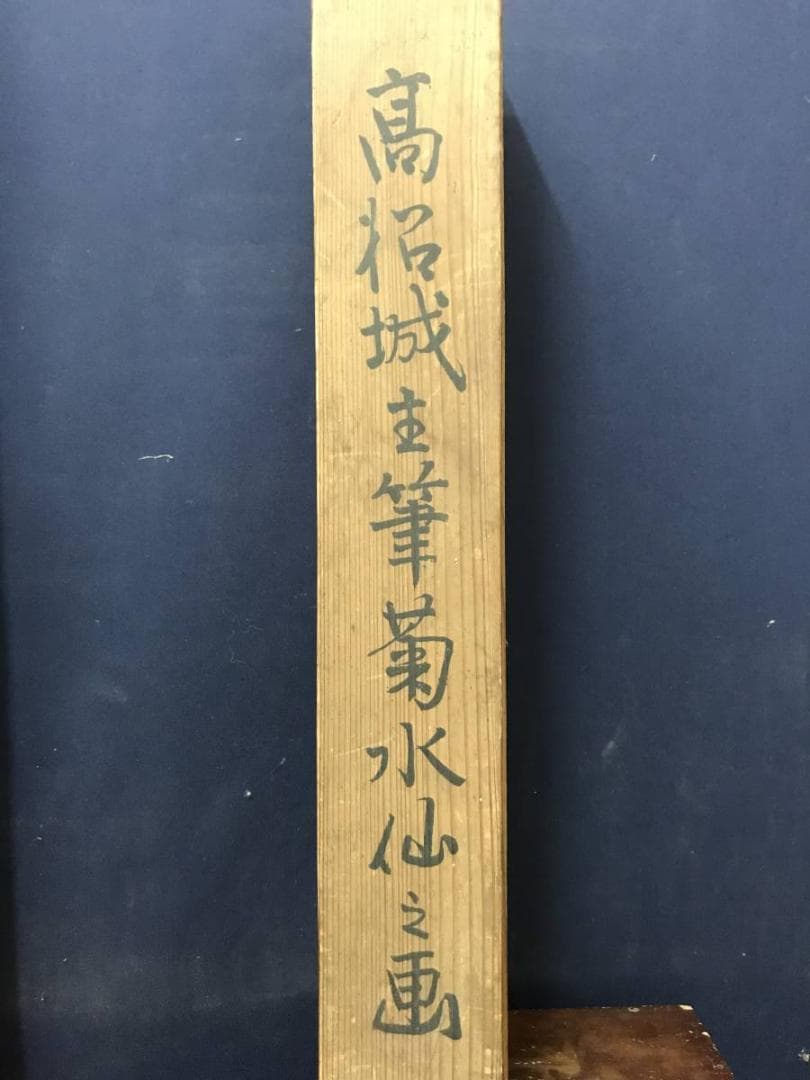 髙柗城主筆菊水仙之画